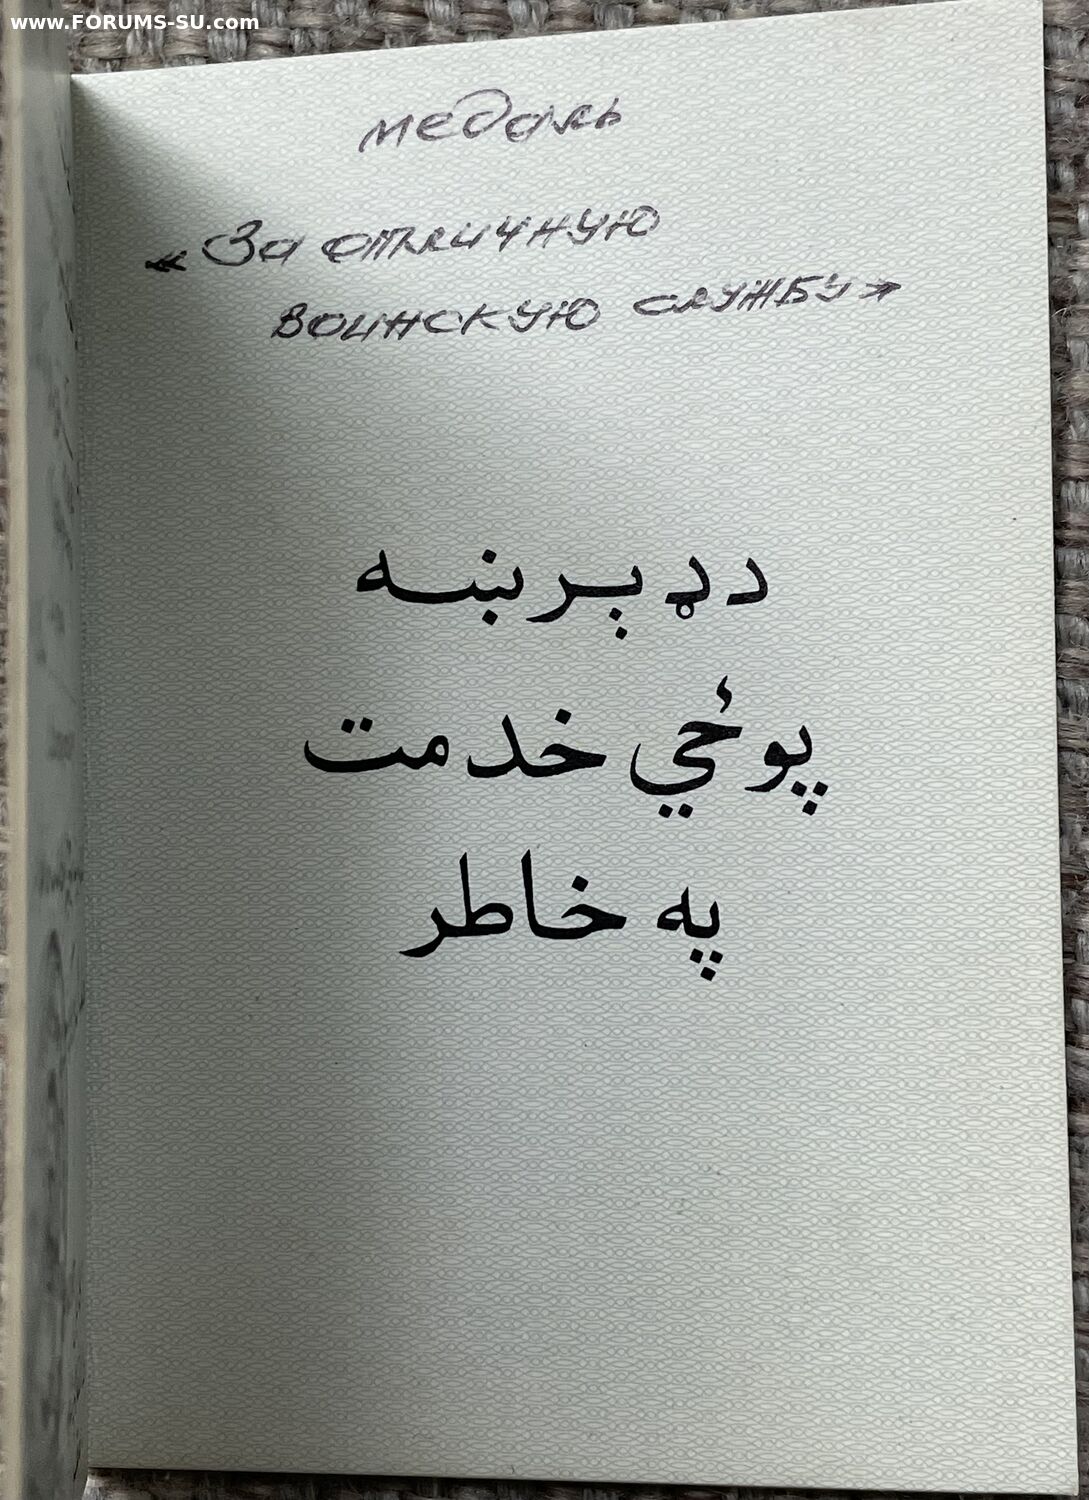 www.FORUMS-SU.com
медаль
«За отличную
воинскую службу»
د ډېر ښه
پوځي خدمت
په خاطر